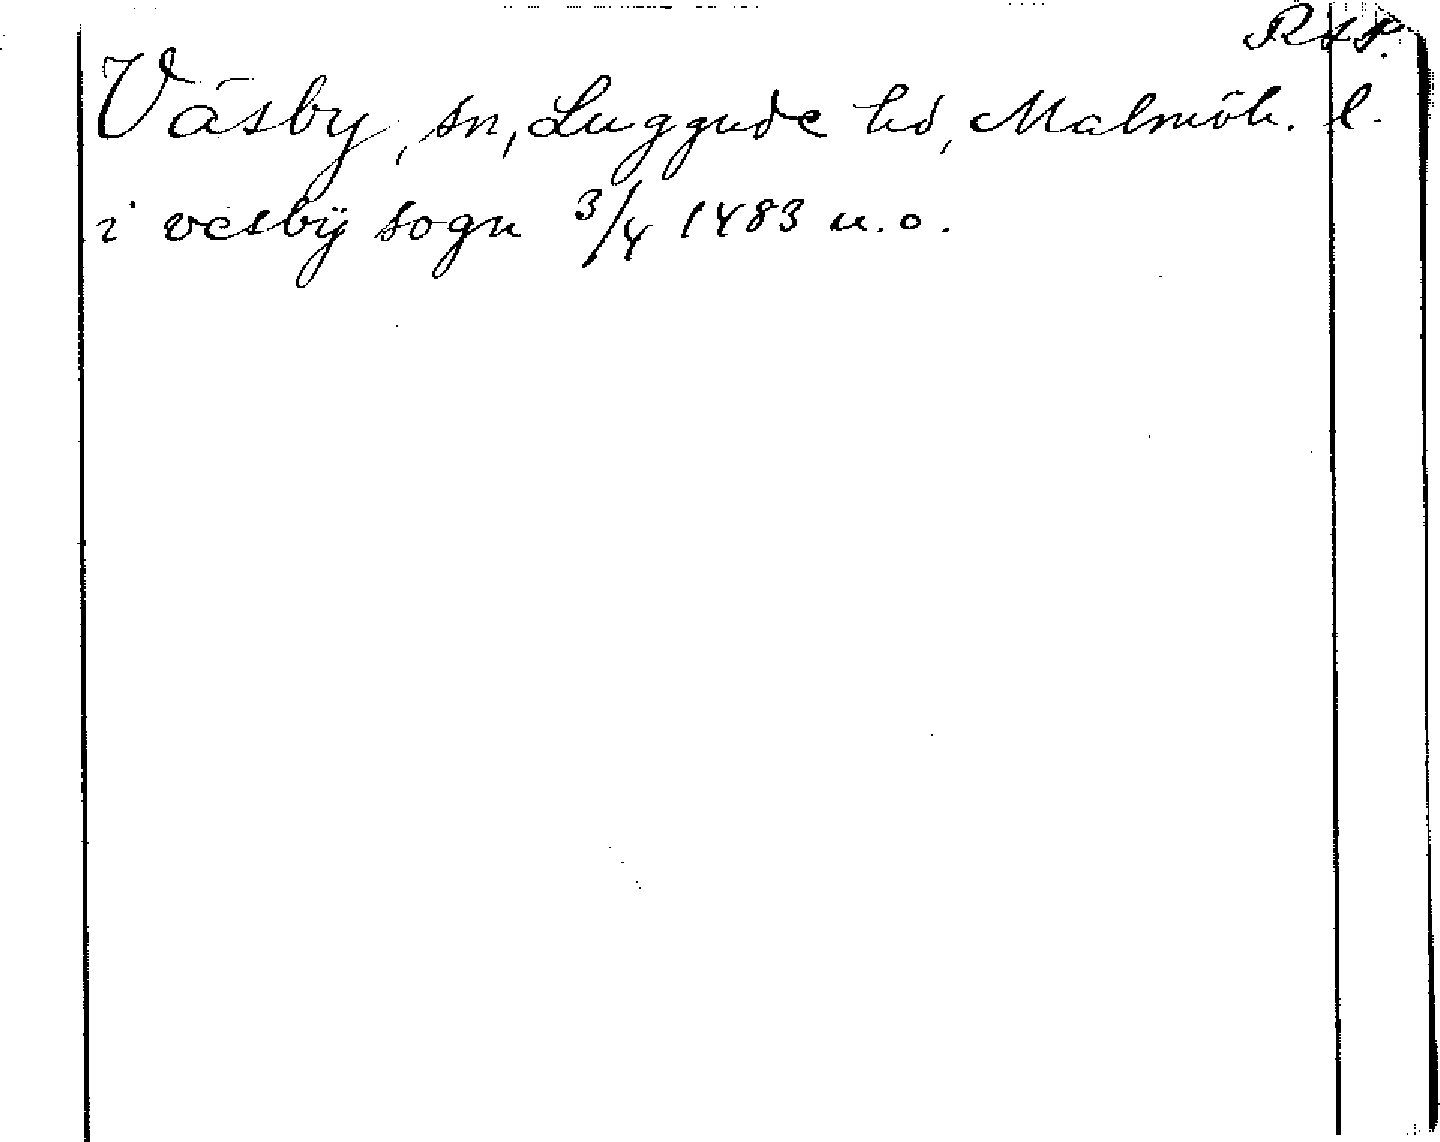 Väsby, sn, Luggude hd, Malmöh. l.
i vesbÿ sogn 3/4 1483 u.o.